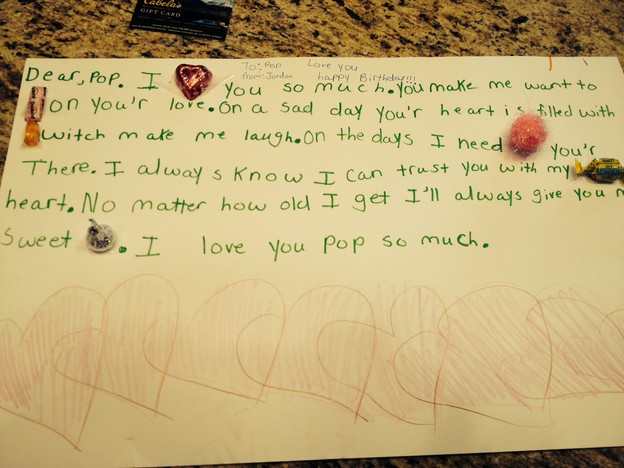 Cabela's
GIFT CARD
To: Pop Love you
from: Jordan happy Birthday!!!
Dear, Pop. I you so much. you make me want to
on you'r love. On a sad day you'r heart is filled with
witch make me laugh. On the days I need you'r
There. I always know I can trust you with my
heart. No matter how old I get I'll always give you
sweet . I love you Pop so much.